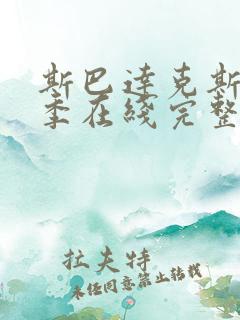 斯巴达克斯
季在线完整
拉夫特
未经同意禁止转载